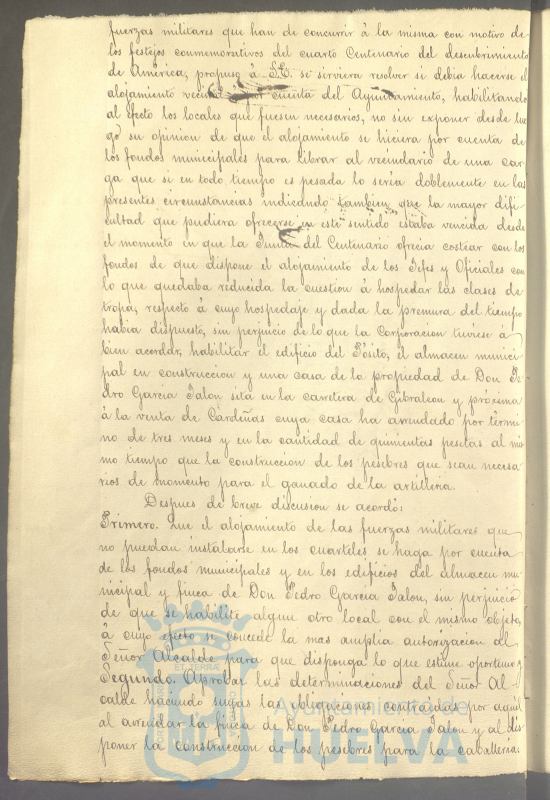 fuerzas militares que han de concurrir á la misma con motivo de
los festejos conmemorativos del cuarto Centenario del descubrimiento
de América, propuso á S.E. se sirviera resolver si debia hacerse el
alojamiento por cuenta del Ayuntamiento, habilitando
al efecto los locales que fuesen necesarios, no sin exponer desde lue
go su opinion de que el alojamiento se hiciera por cuenta de
los fondos municipales para librar al vecindario de una car
ga que si en todo tiempo es pesada lo seria doblemente en las
presentes circunstancias indicando tambien que la mayor difi
cultad que pudiera ofrecerse en este sentido estaba vencida desde
el momento en que la Junta del Centenario ofrecia costear con los
fondos de que dispone el alojamiento de los Jefes y Oficiales con
lo que quedaba reducida la cuestion á hospedar las clases de
tropa, respecto á cuyo hospedaje y dada la premura del tiempo
habia dispuesto, sin perjuicio de lo que la Corporacion tuviese á
bien acordar, habilitar el edificio del Pósito, el almacen munici
pal en construccion y una casa de la propiedad de Don Pe
dro Garcia Jalon sita en la carretera de Gibraleon y próxima
á la venta de Cardeñas cuya casa ha arrendado por térmi
no de tres meses y en la cantidad de quinientas pesetas al mis
mo tiempo que la construccion de los pesebres que sean necesa
rios de momento para el ganado de la artilleria.
Despues de breve discusion se acordó:
Primero. Que el alojamiento de las fuerzas militares que
no puedan instalarse en los cuarteles se haga por cuenta
de los fondos municipales y en los edificios del almacen mu
nicipal y finca de Don Pedro Garcia Jalon, sin perjuicio
de que se habilite algun otro local con el mismo objeto,
á cuyo efecto se concede la mas amplia autorizacion al
Señor Alcalde para que disponga lo que estime oportuno y
Segundo. Aprobar las determinaciones del Señor Al
calde haciendo suyas las obligaciones contraidas por aquel
al arrendar la finca de Don Pedro Garcia Jalon y al dis
poner la construccion de los pesebres para la caballeria.
Ayuntamiento de
HUELVA